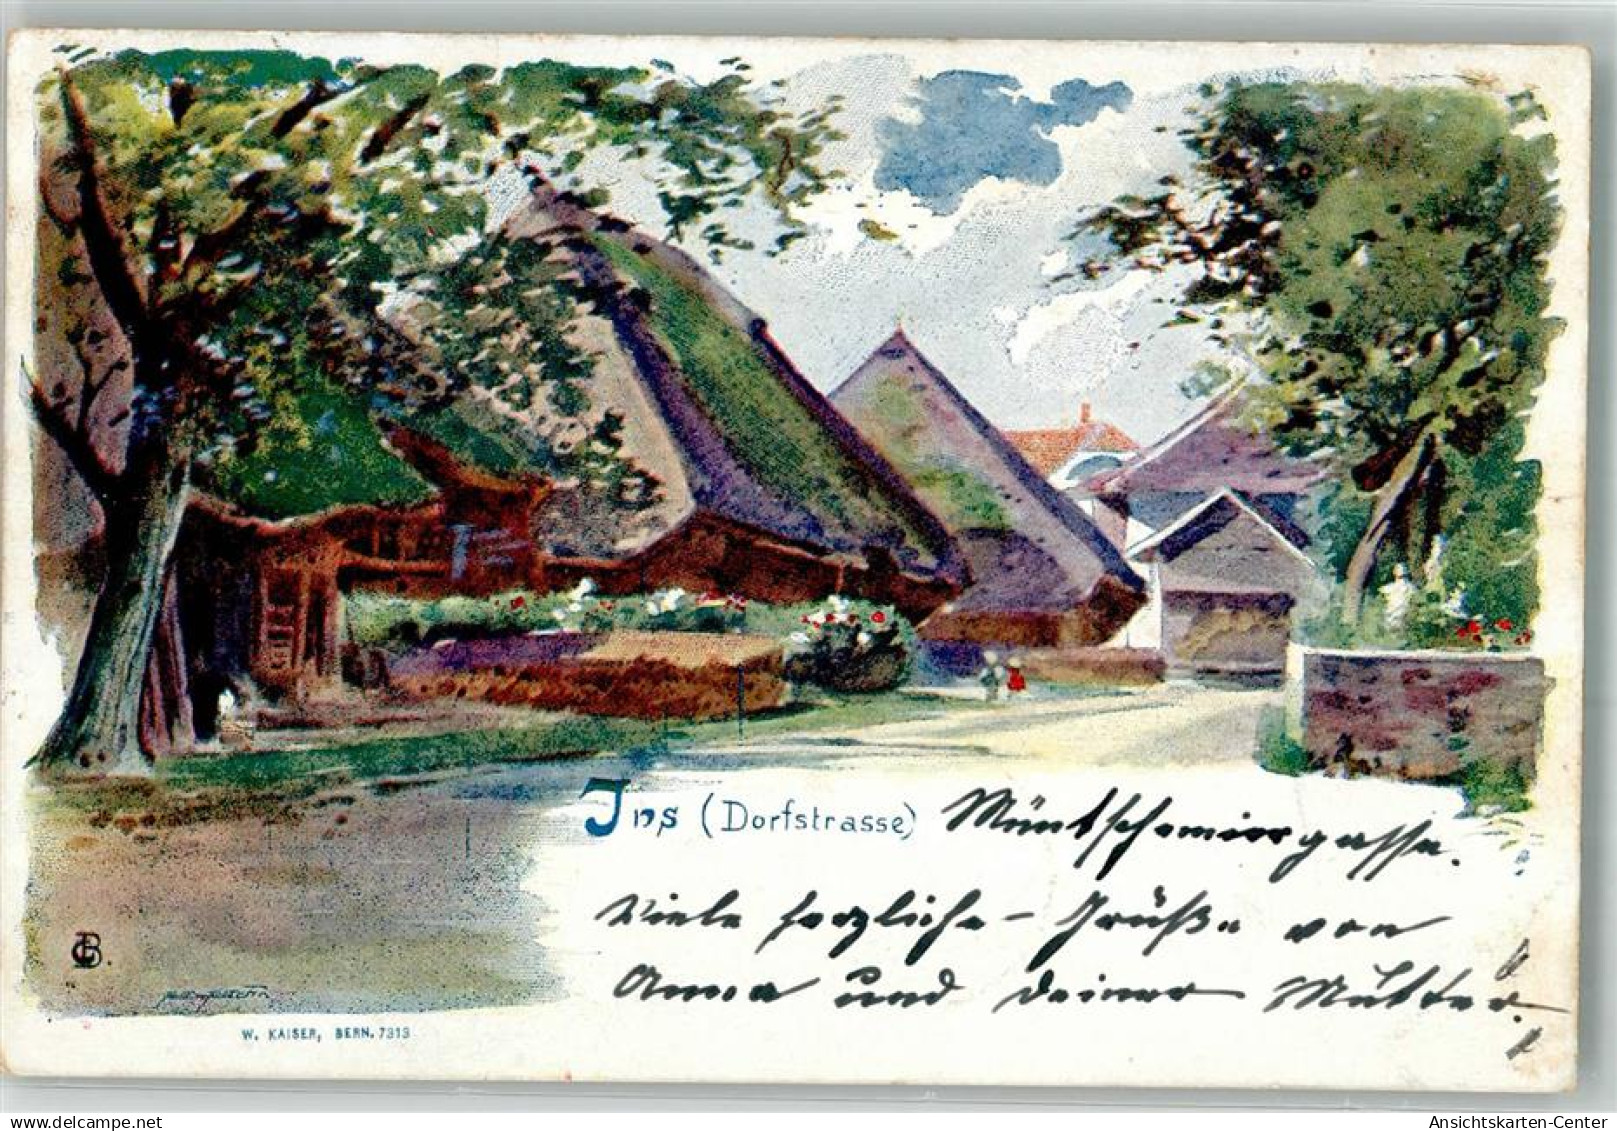 Ins (Dorfstrasse) Müntschemiergasse.
Viele herzliche - Grüße von
Anna und deiner Mutter.
CB.
W. KAISER, BERN. 7313
delcampe.net
Ansichtskarten-Center